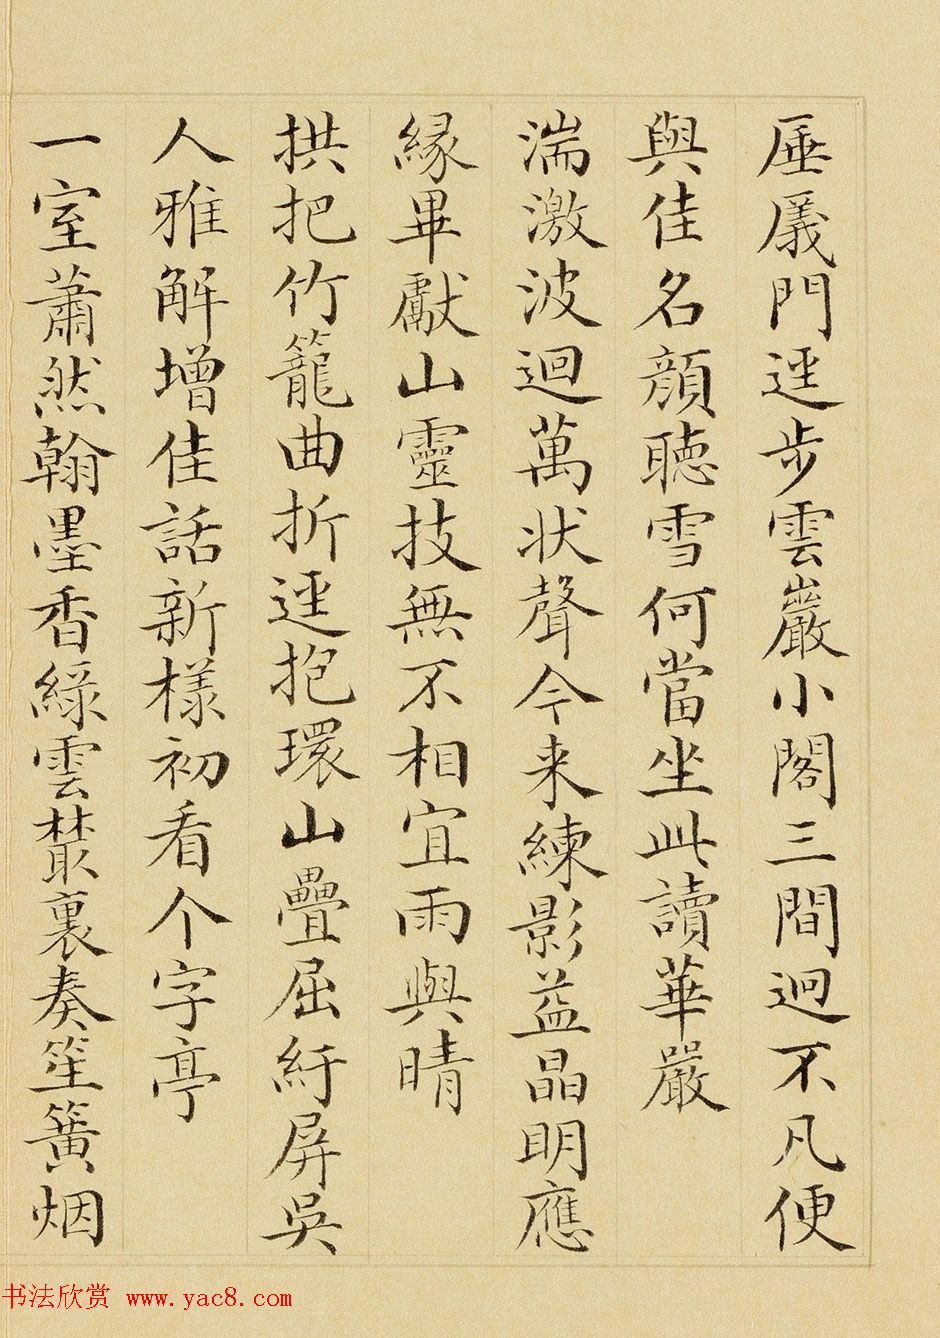 厜㕒門逕步雲巖小閣三間迥不凡便
與佳名顔聽雪何當坐此讀華嚴
湍激波迴萬状聲今来練影益晶明應
緣畢獻山靈技無不相宜雨與晴
拱把竹籠曲折逕抱環山疊屈紆屏吳
人雅解增佳話新樣初看个字亭
一室蕭然翰墨香綠雲叢裏奏笙簧烟
书法欣赏 www.yac8.com